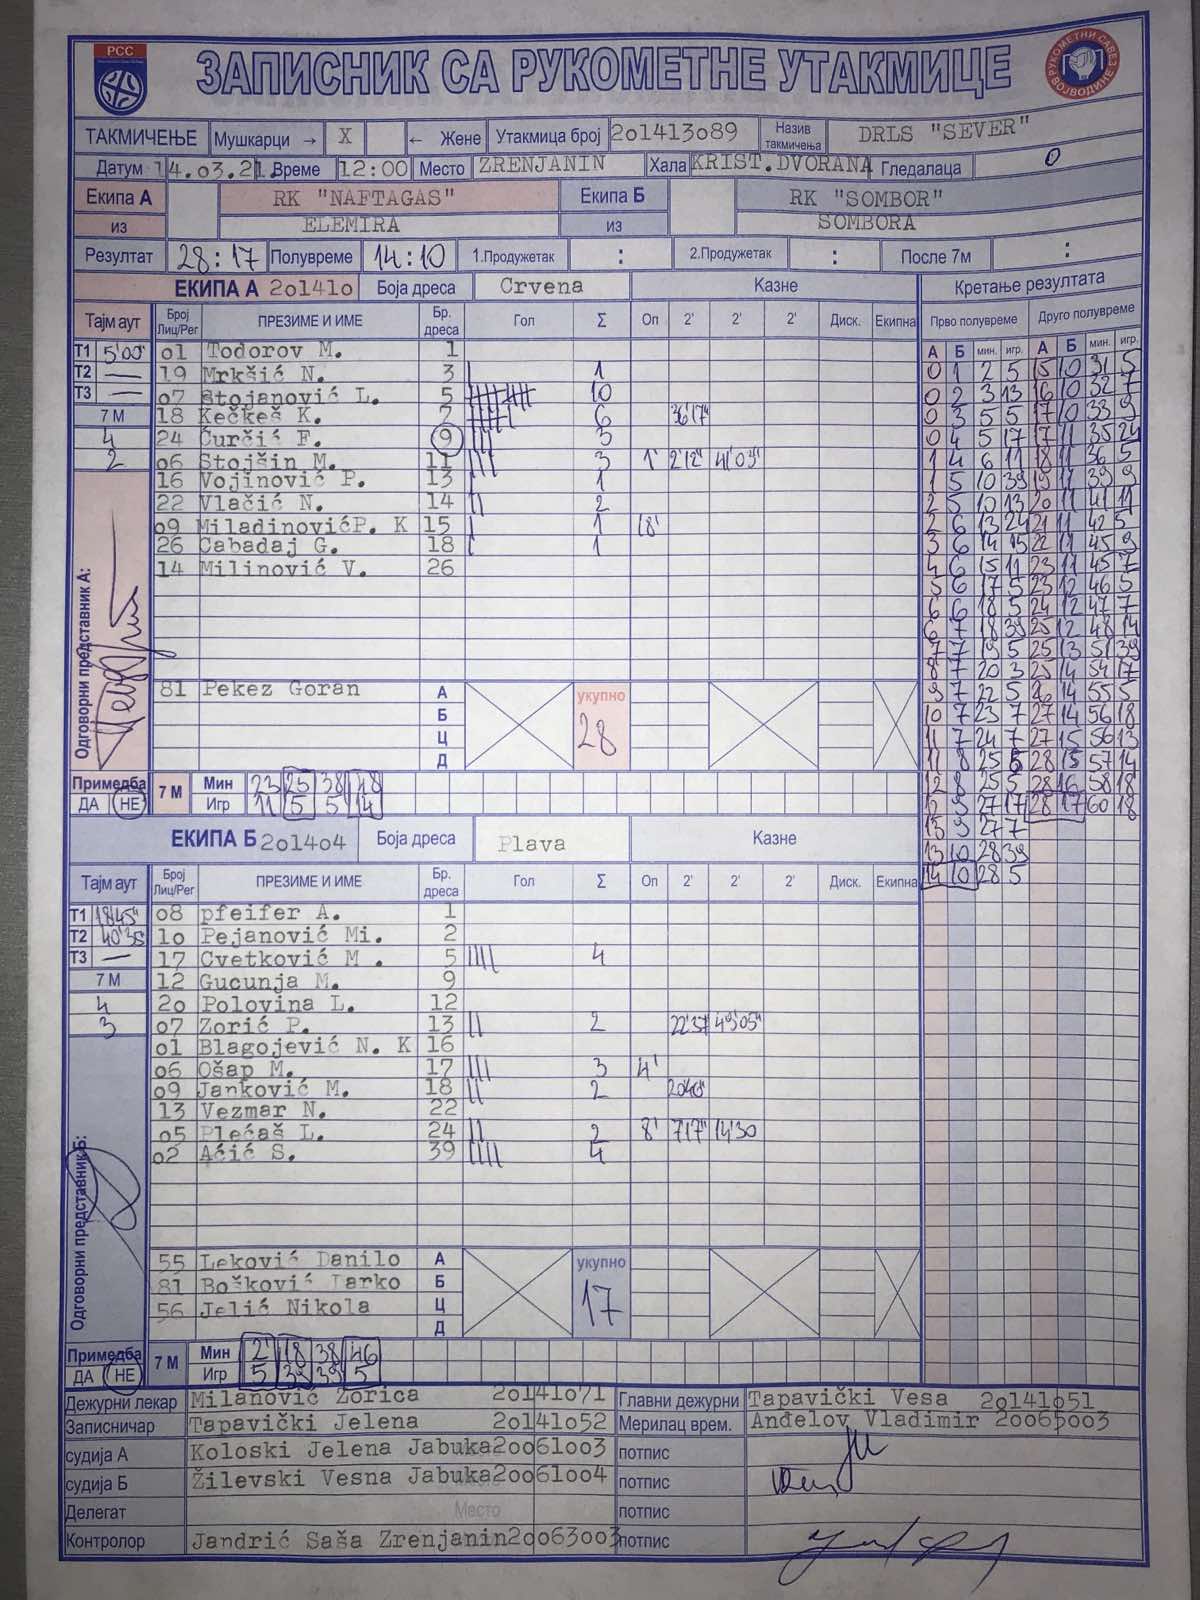 РСС
ЗАПИСНИК СА РУКОМЕТНЕ УТАКМИЦЕ
ТАКМИЧЕЊЕ Мушкарци → X ← Жене Утакмица број 2o1413o89 Назив такмичења DRLS "SEVER"
Датум 14.o3.21. Време 12:00 Место ZRENJANIN Хала KRIST.DVORANA Гледалаца 0
Екипа А RK "NAFTAGAS" Екипа Б RK "SOMBOR"
из ELEMIRA из SOMBORA
Резултат 28:17 Полувреме 14:10 1.Продужетак : 2.Продужетак : После 7м :
ЕКИПА А 2o141o Боја дреса Crvena Казне Кретање резултата
Тајм аут Број Лиц/Рег ПРЕЗИМЕ И ИМЕ Бр. дреса Гол Σ Оп 2' 2' 2' Диск. Екипна Прво полувреме Друго полувреме
А Б мин. игр. А Б мин. игр.
Т1 5'00" o1 Todorov M. 1
Т2 — 19 Mrkšić N. 3 1
Т3 — o7 Stojanović L. 5 10
7 М 18 Kečkeš K. 7 6 36'17"
4 24 Ćurčić F. 9 3
2 o6 Stojšin M. 11 3 1' 2'12" 41'03"
16 Vojinović P. 13 1
22 Vlačić N. 14 2
o9 MiladinovićP. K 15 1 18'
26 Cabadaj G. 18 1
14 Milinović V. 26
Одговорни представник А:
81 Pekez Goran А укупно
Б 28
Ц
Д
Примедба 7 М Мин 23 25 38 48
ДА НЕ Игр 11 5 5 14
0 1 2 5 15 10 31 5
0 2 3 13 16 10 32 7
0 3 5 5 17 10 33 9
0 4 5 17 17 11 35 24
1 4 6 11 18 11 36 5
1 5 10 39 19 11 39 9
2 5 10 13 20 11 41 11
2 6 13 24 21 11 42 5
3 6 14 15 22 11 45 9
4 6 15 11 23 11 45 7
5 6 17 5 23 12 46 5
6 6 18 5 24 12 47 7
6 7 18 39 25 12 48 14
7 7 19 5 25 13 51 39
8 7 20 3 25 14 54 17
9 7 22 5 26 14 55 5
10 7 23 7 27 14 56 18
11 7 24 7 27 15 56 13
11 8 25 5 28 15 57 14
12 8 25 5 28 16 58 18
12 9 27 17 28 17 60 18
13 9 27 7
13 10 28 39
14 10 28 5
ЕКИПА Б 2o14o4 Боја дреса Plava Казне
Тајм аут Број Лиц/Рег ПРЕЗИМЕ И ИМЕ Бр. дреса Гол Σ Оп 2' 2' 2' Диск. Екипна
Т1 18'45" o8 pfeifer A. 1
Т2 40'35 1o Pejanović Mi. 2
Т3 — 17 Cvetković M . 5 4
7 М 12 Gucunja M. 9
4 2o Polovina L. 12
3 o7 Zorić P. 13 2 22'37 49'05"
o1 Blagojević N. K 16
o6 Ošap M. 17 3 4'
o9 Janković M. 18 2 20'40"
13 Vezmar N. 22
o5 Plećaš L. 24 2 8' 7'17" 14'30
o2 Aćić S. 39 4
Одговорни представник Б:
55 Leković Danilo А укупно
81 Bošković Darko Б 17
56 Jelić Nikola Ц
Д
Примедба 7 М Мин 2' 18 38 46
ДА НЕ Игр 5 39 39 5
Дежурни лекар Milanović Zorica 2o141o71 Главни дежурни Tapavički Vesa 2o141o51
Записничар Tapavički Jelena 2o141o52 Мерилац врем. Anđelov Vladimir 2oo65oo3
судија А Koloski Jelena Jabuka2oo61oo3 потпис
судија Б Žilevski Vesna Jabuka2oo61oo4 потпис
Делегат Место потпис
Контролор Jandrić Saša Zrenjanin2oo63oo3 потпис